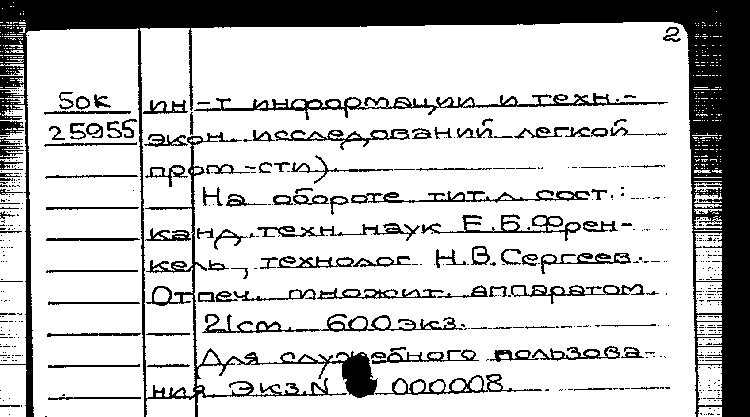 2
50к ин-т информации и техн.-
25955 экон. исследований легкой
пром-сти).
На обороте тит.л. сост.:
канд.техн. наук Е.Б.Френ-
кель, технолог Н.В.Сергеев.
Отпеч. множит. аппаратом.
21cm. 600экз.
Для служебного пользова-
ния. Экз.N 000008.